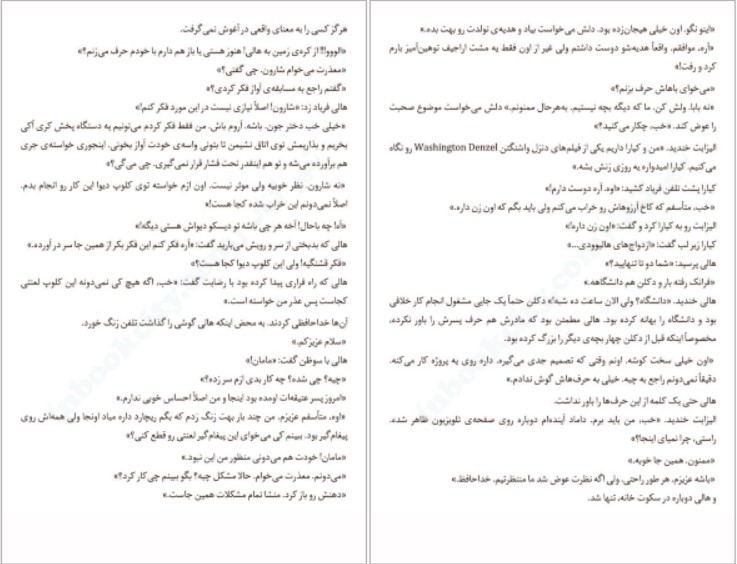 هرگز کسی را به معنای واقعی در آغوش نمی‌گرفت.
«الووو!!! از کره‌ی زمین به هالی! هنوز هستی یا باز هم دارم با خودم حرف می‌زنم؟»
«معذرت می‌خوام شارون. چی گفتی؟»
«گفتم راجع به مسابقه‌ی آواز فکر کردی؟»
هالی فریاد زد: «شارون! اصلاً نیازی نیست در این مورد فکر کنم!»
«خیلی خب دختر جون. باشه. آروم باش. من فقط فکر کردم می‌تونیم یه دستگاه پخش کری آکی
بخریم و بذاریمش توی اتاق نشیمن تا بتونی واسه‌ی خودت آواز بخونی. اینجوری خواسته‌ی جری
هم برآورده می‌شه و تو هم اینقدر تحت فشار قرار نمی‌گیری. چی می‌گی؟»
«نه شارون. نظر خوبیه ولی موثر نیست. اون ازم خواسته توی کلوپ دیوا این کار رو انجام بدم.
اصلاً نمی‌دونم این خراب شده کجا هست!»
«آه! چه باحال! آخه هر چی باشه تو دیسکو دیواش هستی دیگه!»
هالی که بدبختی از سر و رویش می‌بارید گفت: «آره فکر کنم این فکر بکر از همین جا سر در آورده.»
«فکر قشنگیه! ولی این کلوپ دیوا کجا هست؟»
هالی که راه فراری پیدا کرده بود با رضایت گفت: «خب، اگه هیچ کی نمی‌دونه این کلوپ لعنتی
کجاست پس عذر من خواسته است.»
آن‌ها خداحافظی کردند. به محض اینکه هالی گوشی را گذاشت تلفن زنگ خورد.
«سلام عزیزکم.»
هالی با سوظن گفت: «مامان!»
«چیه؟ چی شده؟ چه کار بدی ازم سر زده؟»
«امروز پسر عتیقه‌ات اومده بود اینجا و من اصلاً احساس خوبی ندارم.»
«اوه، متأسفم عزیزم. من چند بار بهت زنگ زدم که بگم ریچارد داره میاد اونجا ولی همه‌اش روی
پیغام‌گیر بود. ببینم کی می‌خوای این پیغام‌گیر لعنتی رو قطع کنی؟»
«مامان! خودت هم می‌دونی منظور من این نبود.»
«می‌دونم. معذرت می‌خوام. حالا مشکل چیه؟ بگو ببینم چی کار کرد؟»
«دهنش رو باز کرد. منشا تمام مشکلات همین جاست.»
«اینو نگو. اون خیلی هیجان‌زده بود. دلش می‌خواست بیاد و هدیه‌ی تولدت رو بهت بده.»
«آره، موافقم. واقعاً هدیه‌شو دوست داشتم ولی غیر از اون فقط یه مشت اراجیف توهین‌آمیز بارم
کرد و رفت!»
«می‌خوای باهاش حرف بزنم؟»
«نه بابا. ولش کن. ما که دیگه بچه نیستیم. به‌هرحال ممنونم.» دلش می‌خواست موضوع صحبت
را عوض کند. «خب، چکار می‌کنید؟»
الیزابت خندید. «من و کیارا داریم یکی از فیلم‌های دنزل واشنگتن Washington Denzel رو نگاه
می‌کنیم. کیارا امیدواره یه روزی زنش بشه.»
کیارا پشت تلفن فریاد کشید: «اوه. آره دوست دارم!»
«خب، متأسفم که کاخ آرزوهاش رو خراب می‌کنم ولی باید بگم که اون زن داره.»
الیزابت رو به کیارا کرد و گفت: «اون زن داره!»
کیارا زیر لب گفت: «ازدواج‌های هالیوودی...»
هالی پرسید: «شما دو تا تنهایید؟»
«فرانک رفته بار و دکلن هم دانشگاهه.»
هالی خندید. «دانشگاه؟ ولی الان ساعت ده شبه!» دکلن حتماً یک جایی مشغول انجام کار خلافی
بود و دانشگاه را بهانه کرده بود. هالی مطمئن بود که مادرش هم حرف پسرش را باور نکرده،
مخصوصاً اینکه قبل از دکلن چهار بچه‌ی دیگر را بزرگ کرده بود.
«اون خیلی سخت کوشه. اونم وقتی که تصمیم جدی می‌گیره. داره روی یه پروژه کار می‌کنه.
دقیقاً نمی‌دونم راجع به چیه. خیلی به حرف‌هاش گوش ندادم.»
هالی حتی یک کلمه از این حرف‌ها را باور نداشت.
الیزابت خندید. «خب، من باید برم. داماد آینده‌ام دوباره روی صفحه‌ی تلویزیون ظاهر شده.
راستی، چرا نمیای اینجا؟»
«ممنون. همین جا خوبه.»
«باشه عزیزم. هر طور راحتی. ولی اگه نظرت عوض شد ما منتظرتیم. خداحافظ.»
و هالی دوباره در سکوت خانه، تنها شد.